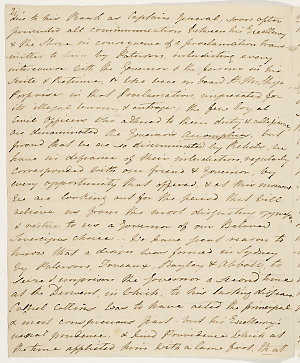 due to his Rank as Captain General, soon after
prevented all communication between his Excellency
& the Shore in consequence of a proclamation trans
mitted to him by Paterson interdicting every
intercourse with the Governor & the persons in his
Suite & Retinue, or like were on board the Ship
Porpoise in that Proclamation, unprecedented for
its illegal venom, & outrage, the few loyal
Civil Officers who adhered to their duty & allegiance
are denominated the Governors Accomplices, but
proud that we are so discriminated by Rebels, we
have in defiance of their interdiction, regularly
corresponded with our friend & Governor, by
every opportunity that offered, & at this moment
we are looking out for the period that will
relieve us from the most disgusting
& restore to us a Governor of our Beloved
Sovereigns choice. We have great reason to
know that a design was formed in Sydney
by Paterson, Foveaux, Bayley & Abbott, to
seize & imprison the Governor a second time
at the Derwent, in which, to his lasting disgrace
Colonel Collins was to have acted the principal
& most conspicuous part. but his Excellency
usual prudence, & kind Providence which at
the time supplied him with a lame